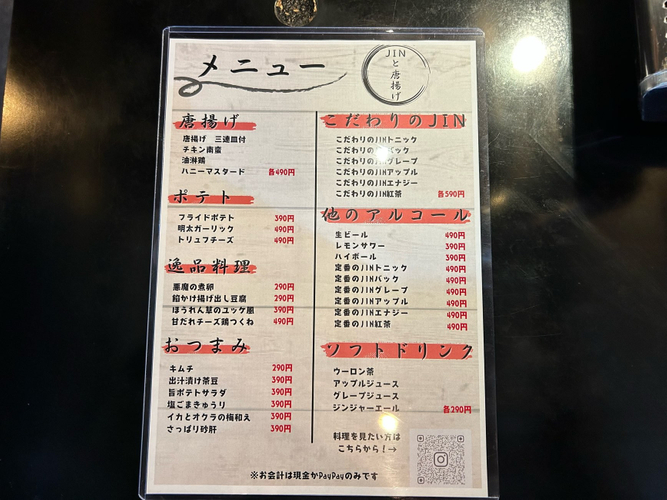 メニュー
JINと唐揚げ
唐揚げ
唐揚げ 三連皿付
チキン南蛮
油淋鶏
ハニーマスタード 各490円
ポテト
フライドポテト 390円
明太ガーリック 490円
トリュフチーズ 490円
逸品料理
悪魔の煮卵 290円
餡かけ揚げ出し豆腐 290円
ほうれん草のユッケ風 390円
甘だれチーズ鶏つくね 490円
おつまみ
キムチ 290円
出汁漬け茶豆 390円
旨ポテトサラダ 390円
塩ごまきゅうり 390円
イカとオクラの梅和え 390円
さっぱり砂肝 390円
こだわりのJIN
こだわりのJINトニック
こだわりのJINバック
こだわりのJINグレープ
こだわりのJINアップル
こだわりのJINエナジー
こだわりのJIN紅茶 各590円
他のアルコール
生ビール 490円
レモンサワー 390円
ハイボール 390円
定番のJINトニック 490円
定番のJINバック 490円
定番のJINグレープ 490円
定番のJINアップル 490円
定番のJINエナジー 490円
定番のJIN紅茶 490円
ソフトドリンク
ウーロン茶
アップルジュース
グレープジュース
ジンジャーエール 各290円
料理を見たい方は
こちらから!→
※お会計は現金かPayPayのみです